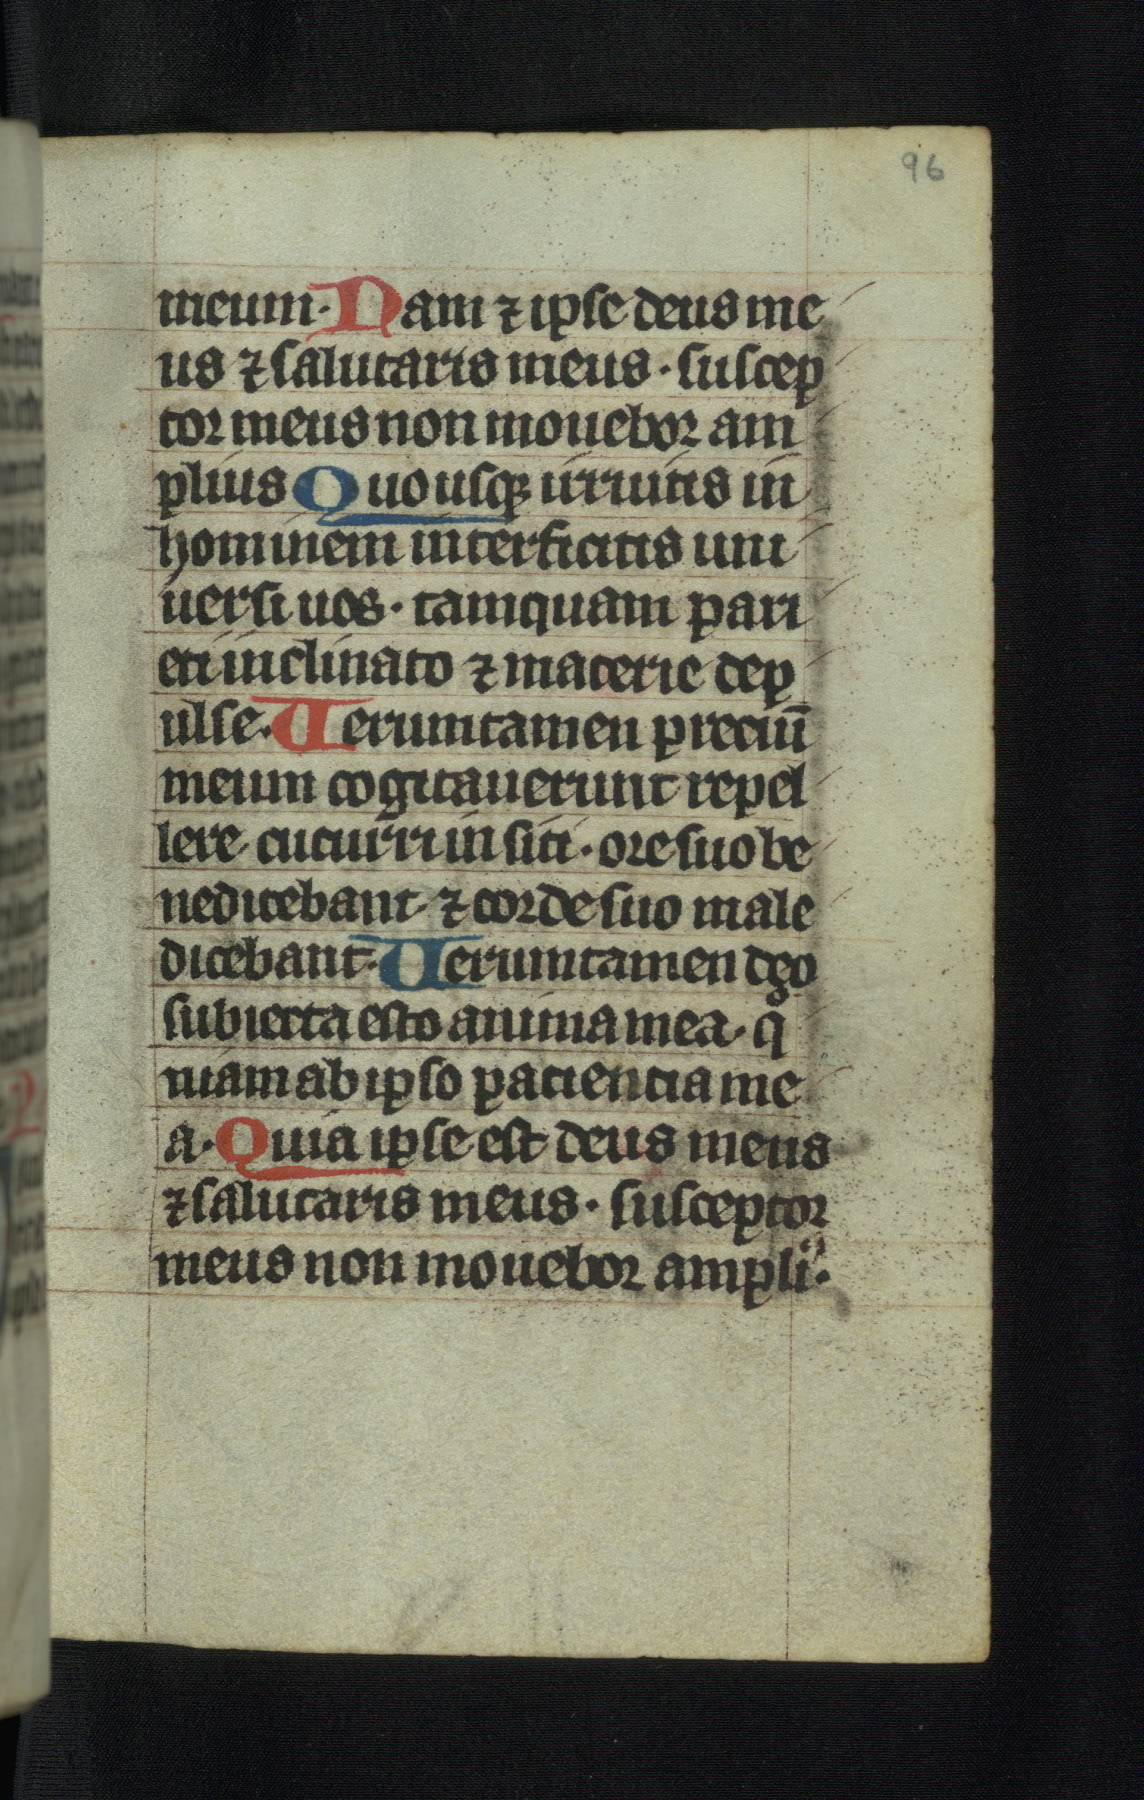 96
meum· Nam ⁊ ipse deus me
us ⁊ salutaris meus · suscep
tor meus non mouebor am
plius Quo usq; irruitis in
hominem interficitis uni
uersi uos · tamquam pari
eti inclinato ⁊ macerie dep
ulse· Ueruntamen preciū
meum cogitauerunt repel
lere cucurri in siti · ore suo be
nedicebant ⁊ corde suo male
dicebant· Ueruntamen deo
subiecta esto anima mea· qͦ
niam ab ipso paciencia me
a· Quia ipse est deus meus
⁊ salutaris meus · susceptor
meus non mouebor ampliꝰ·